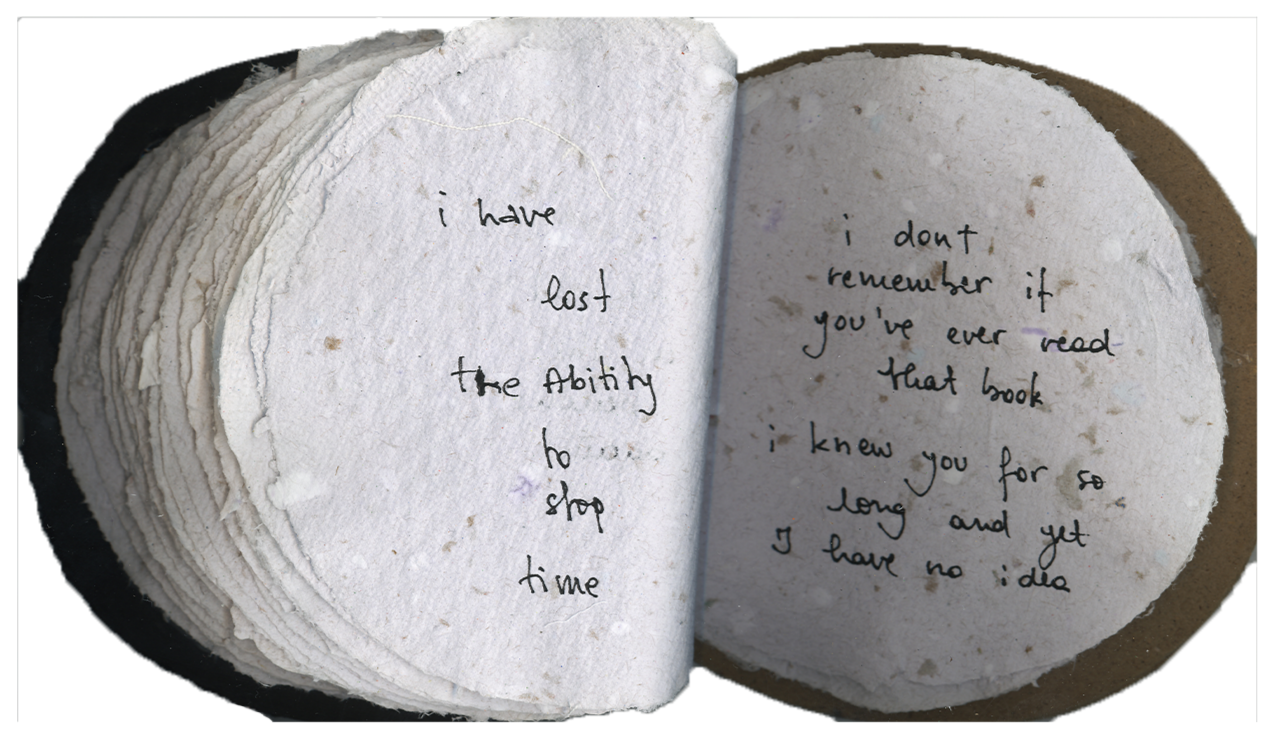 i have
lost
the Ability
to
stop
time
i dont
remember if
you've ever read
that book
i knew you for so
long and yet
I have no idea